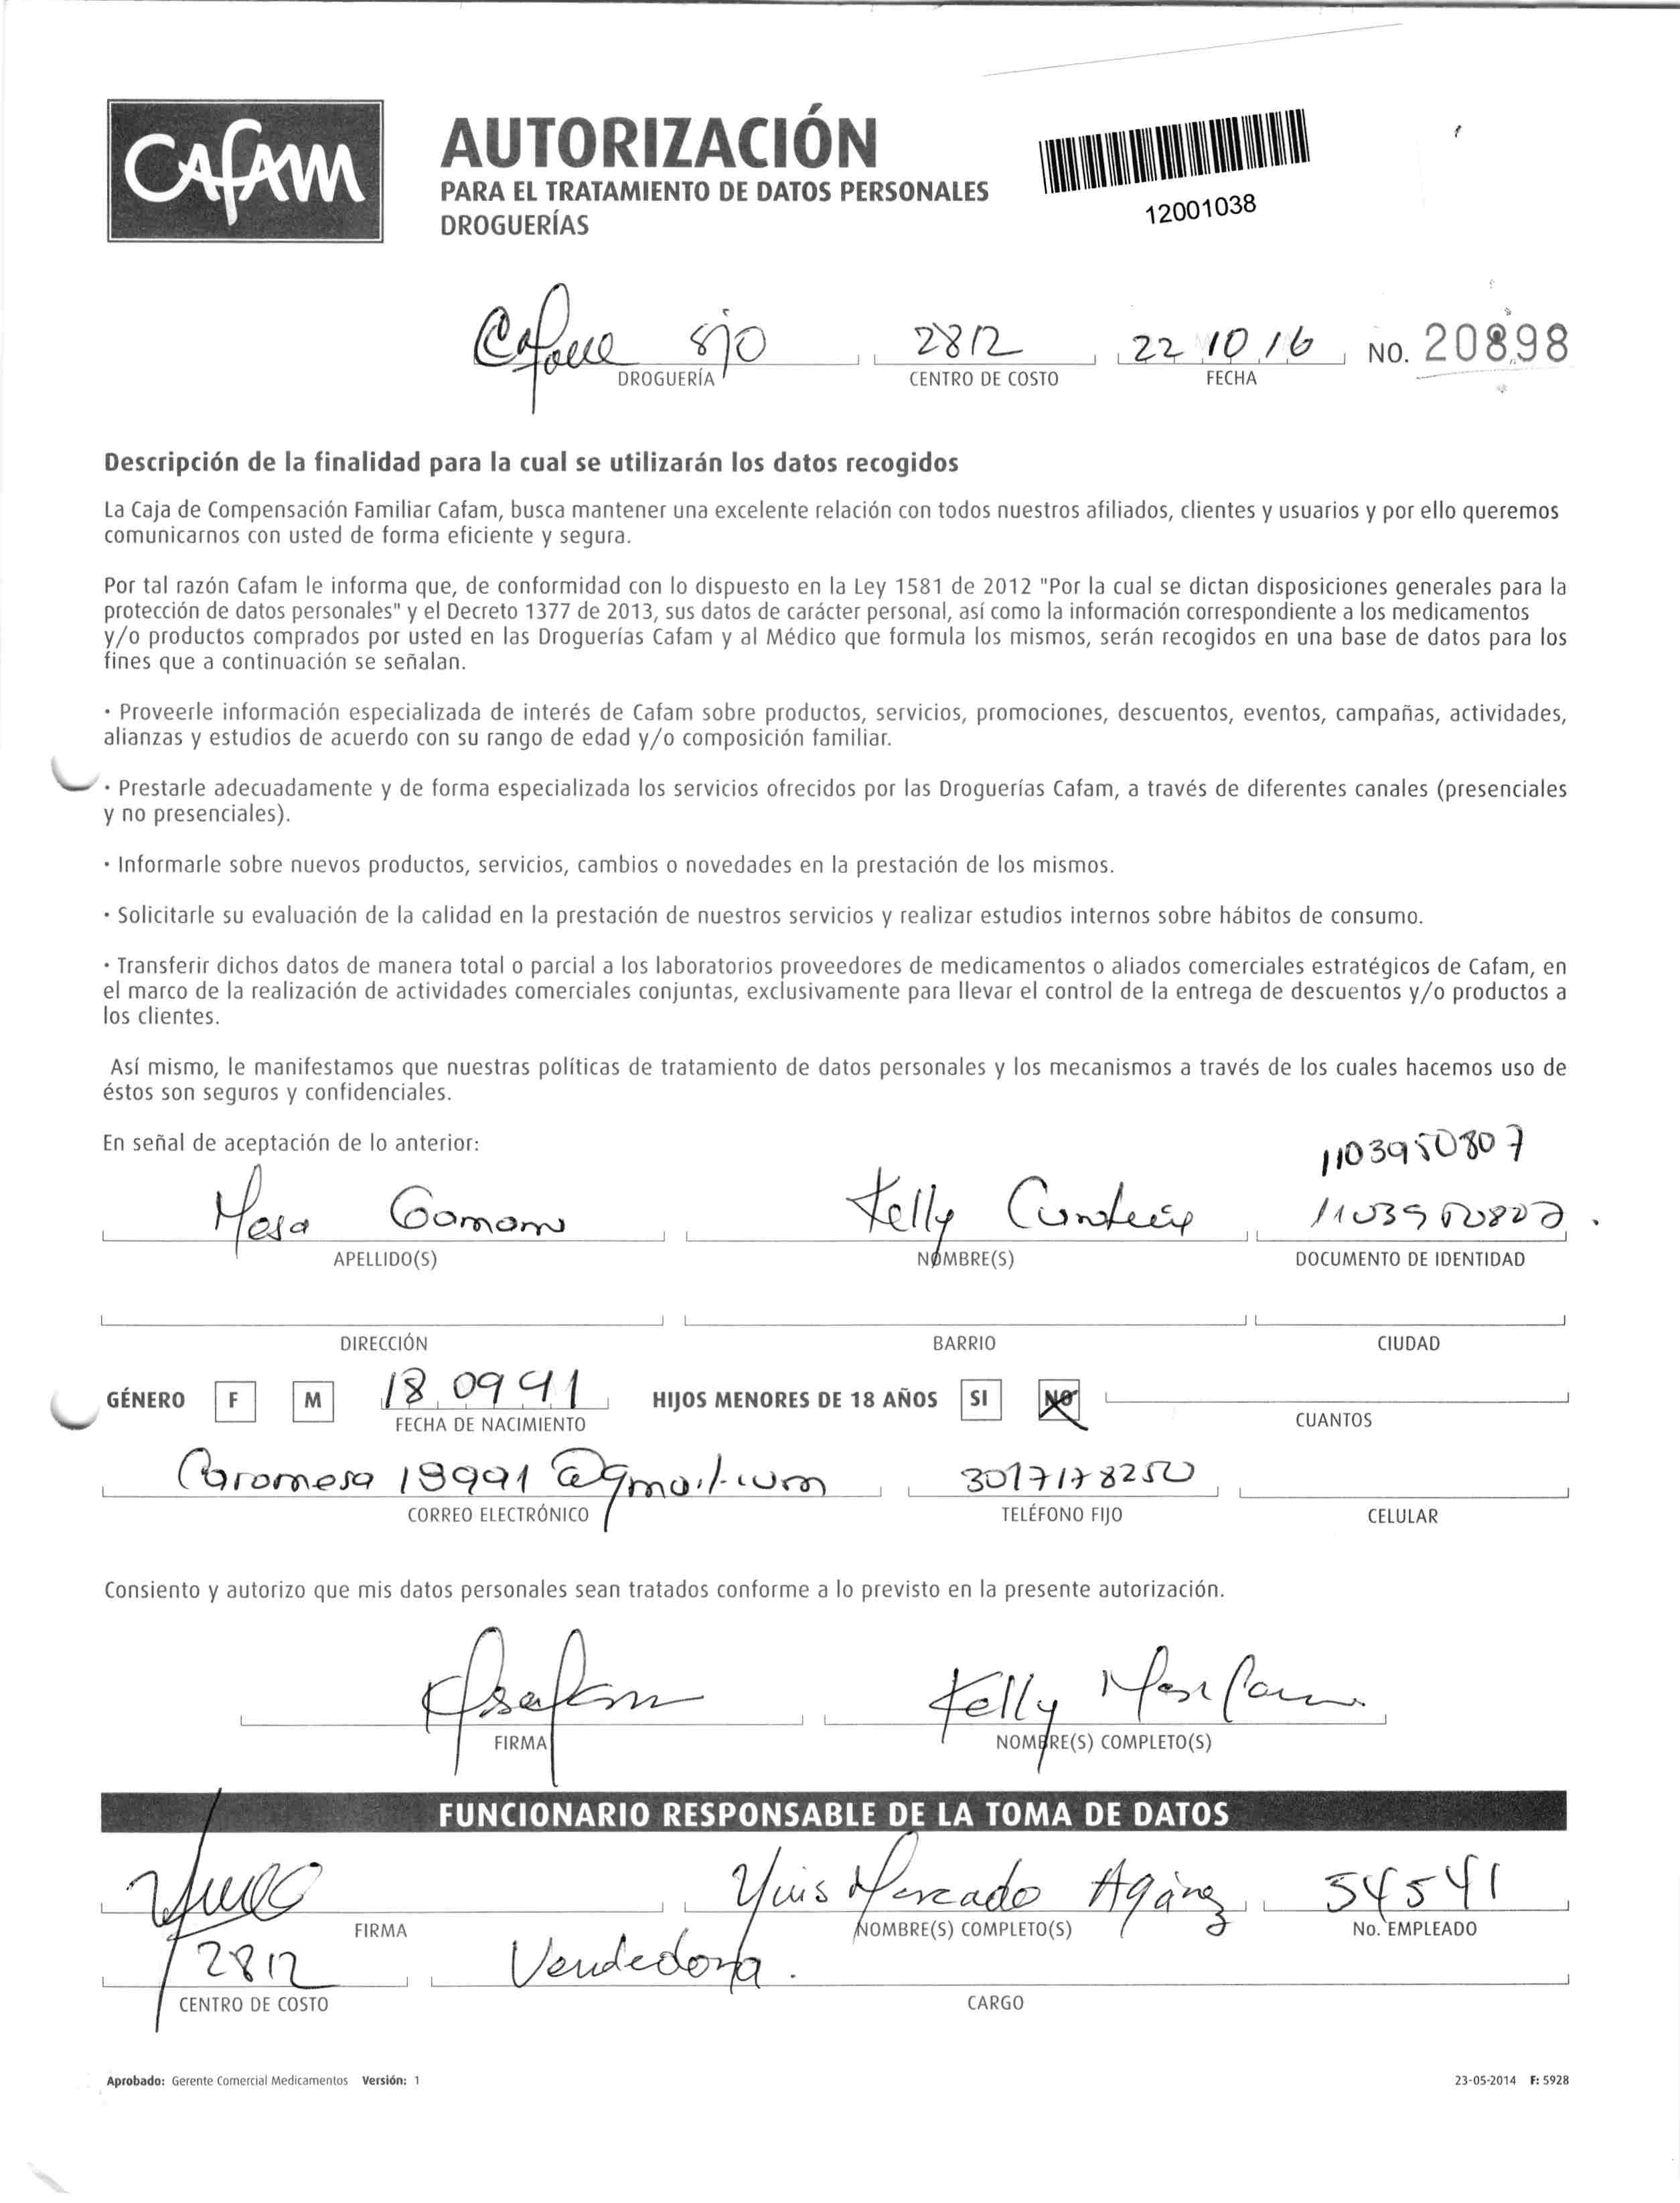 CAfAM
AUTORIZACIÓN
PARA EL TRATAMIENTO DE DATOS PERSONALES
DROGUERÍAS
12001038
2812 22 10 16 NO. 20898
DROGUERÍA CENTRO DE COSTO FECHA
Descripción de la finalidad para la cual se utilizarán los datos recogidos
La Caja de Compensación Familiar Cafam, busca mantener una excelente relación con todos nuestros afiliados, clientes y usuarios y por ello queremos
comunicarnos con usted de forma eficiente y segura.
Por tal razón Cafam le informa que, de conformidad con lo dispuesto en la Ley 1581 de 2012 "Por la cual se dictan disposiciones generales para la
protección de datos personales" y el Decreto 1377 de 2013, sus datos de carácter personal, así como la información correspondiente a los medicamentos
y/o productos comprados por usted en las Droguerías Cafam y al Médico que formula los mismos, serán recogidos en una base de datos para los
fines que a continuación se señalan.
· Proveerle información especializada de interés de Cafam sobre productos, servicios, promociones, descuentos, eventos, campañas, actividades,
alianzas y estudios de acuerdo con su rango de edad y/o composición familiar.
· Prestarle adecuadamente y de forma especializada los servicios ofrecidos por las Droguerías Cafam, a través de diferentes canales (presenciales
y no presenciales).
· Informarle sobre nuevos productos, servicios, cambios o novedades en la prestación de los mismos.
· Solicitarle su evaluación de la calidad en la prestación de nuestros servicios y realizar estudios internos sobre hábitos de consumo.
· Transferir dichos datos de manera total o parcial a los laboratorios proveedores de medicamentos o aliados comerciales estratégicos de Cafam, en
el marco de la realización de actividades comerciales conjuntas, exclusivamente para llevar el control de la entrega de descuentos y/o productos a
los clientes.
Así mismo, le manifestamos que nuestras políticas de tratamiento de datos personales y los mecanismos a través de los cuales hacemos uso de
éstos son seguros y confidenciales.
En señal de aceptación de lo anterior:
1103950807
Mesa Kelly 1103950807
APELLIDO(S) NOMBRE(S) DOCUMENTO DE IDENTIDAD
DIRECCIÓN BARRIO CIUDAD
GÉNERO F M 18 09 91 HIJOS MENORES DE 18 AÑOS SI NO
FECHA DE NACIMIENTO CUANTOS
Caromesa18991@gmail.com 3017178250
CORREO ELECTRÓNICO TELÉFONO FIJO CELULAR
Consiento y autorizo que mis datos personales sean tratados conforme a lo previsto en la presente autorización.
Kelly
FIRMA NOMBRE(S) COMPLETO(S)
FUNCIONARIO RESPONSABLE DE LA TOMA DE DATOS
Yuis Mercado 54541
FIRMA NOMBRE(S) COMPLETO(S) No. EMPLEADO
2812 Vendedora.
CENTRO DE COSTO CARGO
Aprobado: Gerente Comercial Medicamentos Versión: 1 23-05-2014 F: 5928